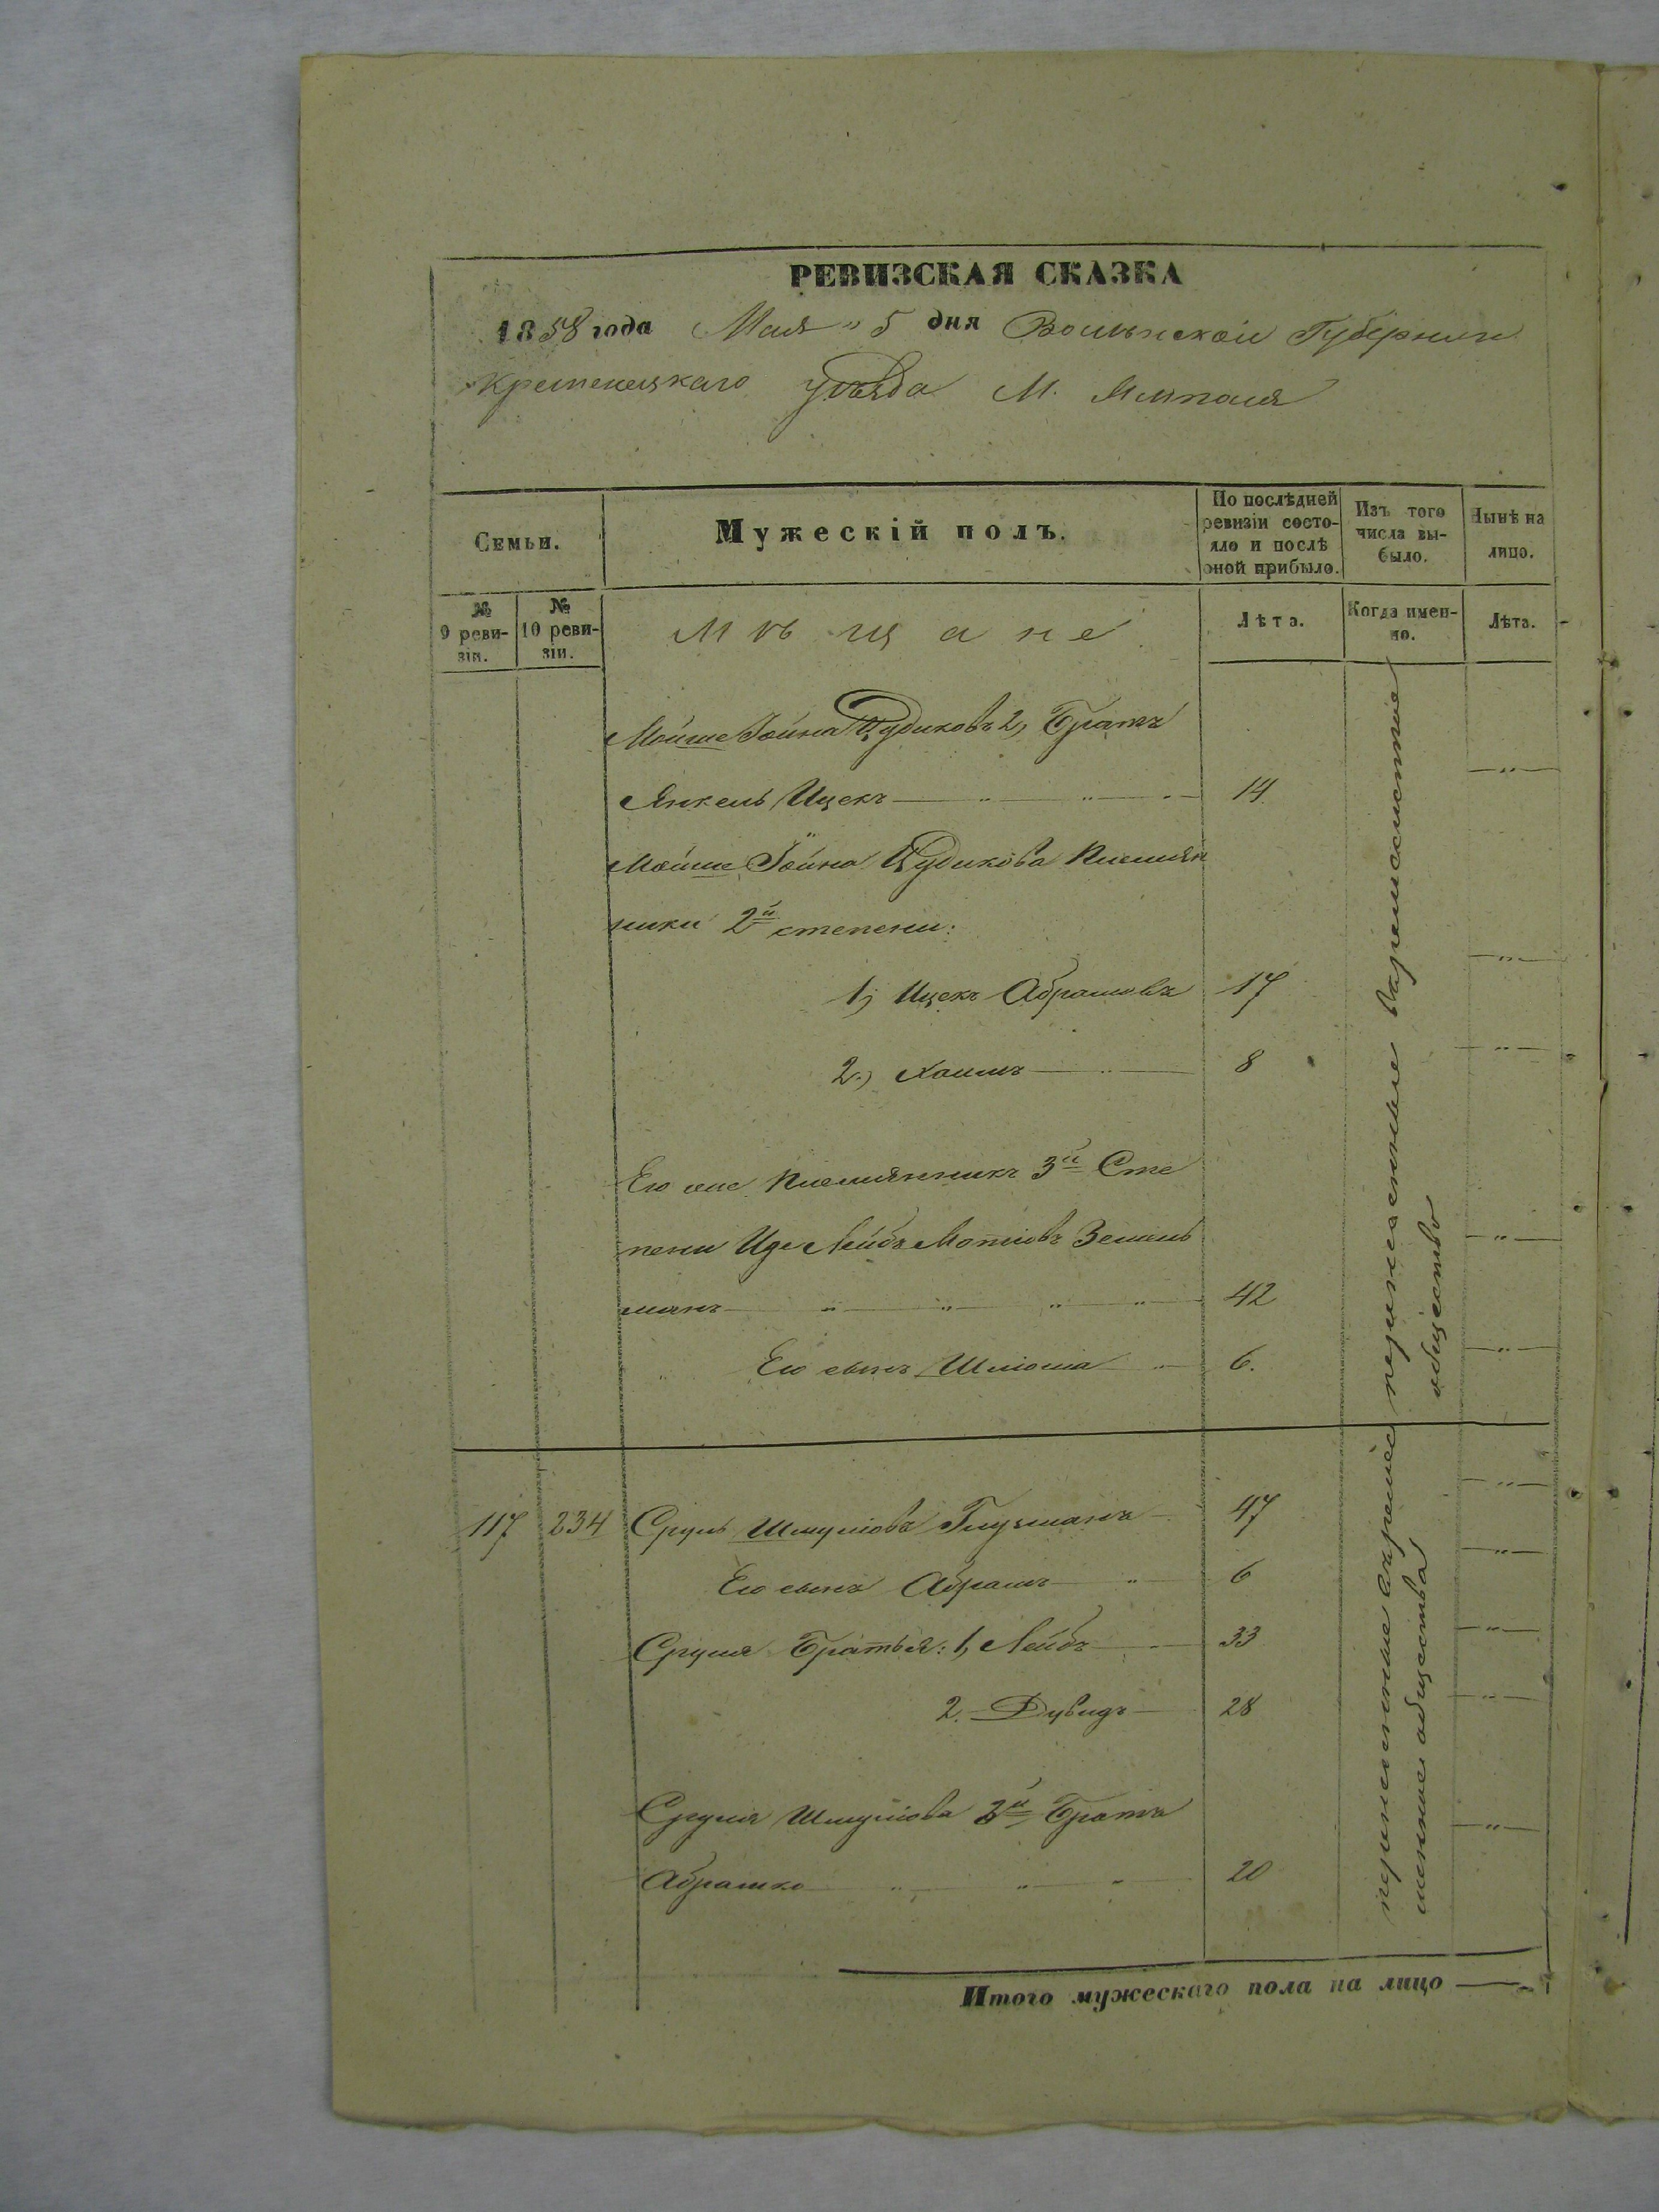 РЕВИЗСКАЯ СКАЗКА
1858 года Мая " 5 дня Волынской Губернии
Кременецкаго уѣзда М. Ямполя
Семьи.
Мужескій полъ.
По послѣдней ревизіи состояло и послѣ оной прибыло.
Изъ того числа выбыло.
Нынѣ на лицо.
№ 9 ревизіи.
№ 10 ревизіи.
Мѣщане
Лѣта.
Когда именно.
Лѣта.
Мойше Іойна Цудиковъ 2, Братъ
Янкель Ицекъ 14
Мойше Іойна Цудикова Племян
ники 2й степени:
1, Ицекъ Абрамовъ 17
2, Хаимъ 8
Его же Племянникъ 3й Сте
пени Иде Лейбъ Мотіовъ Зельць
манъ 42
Его сынъ Шліома 6.
117 234 Сруль Шмуліовъ Глузманъ 47
Его сынъ Абрамъ 6
Сруля Братья: 1, Лейбъ 33
2. Дувидъ 28
Сруля Шмуліова 2й Братъ
Абрашко 20
перечисленные
общество
перечисленные
общества
Итого мужескаго пола на лицо